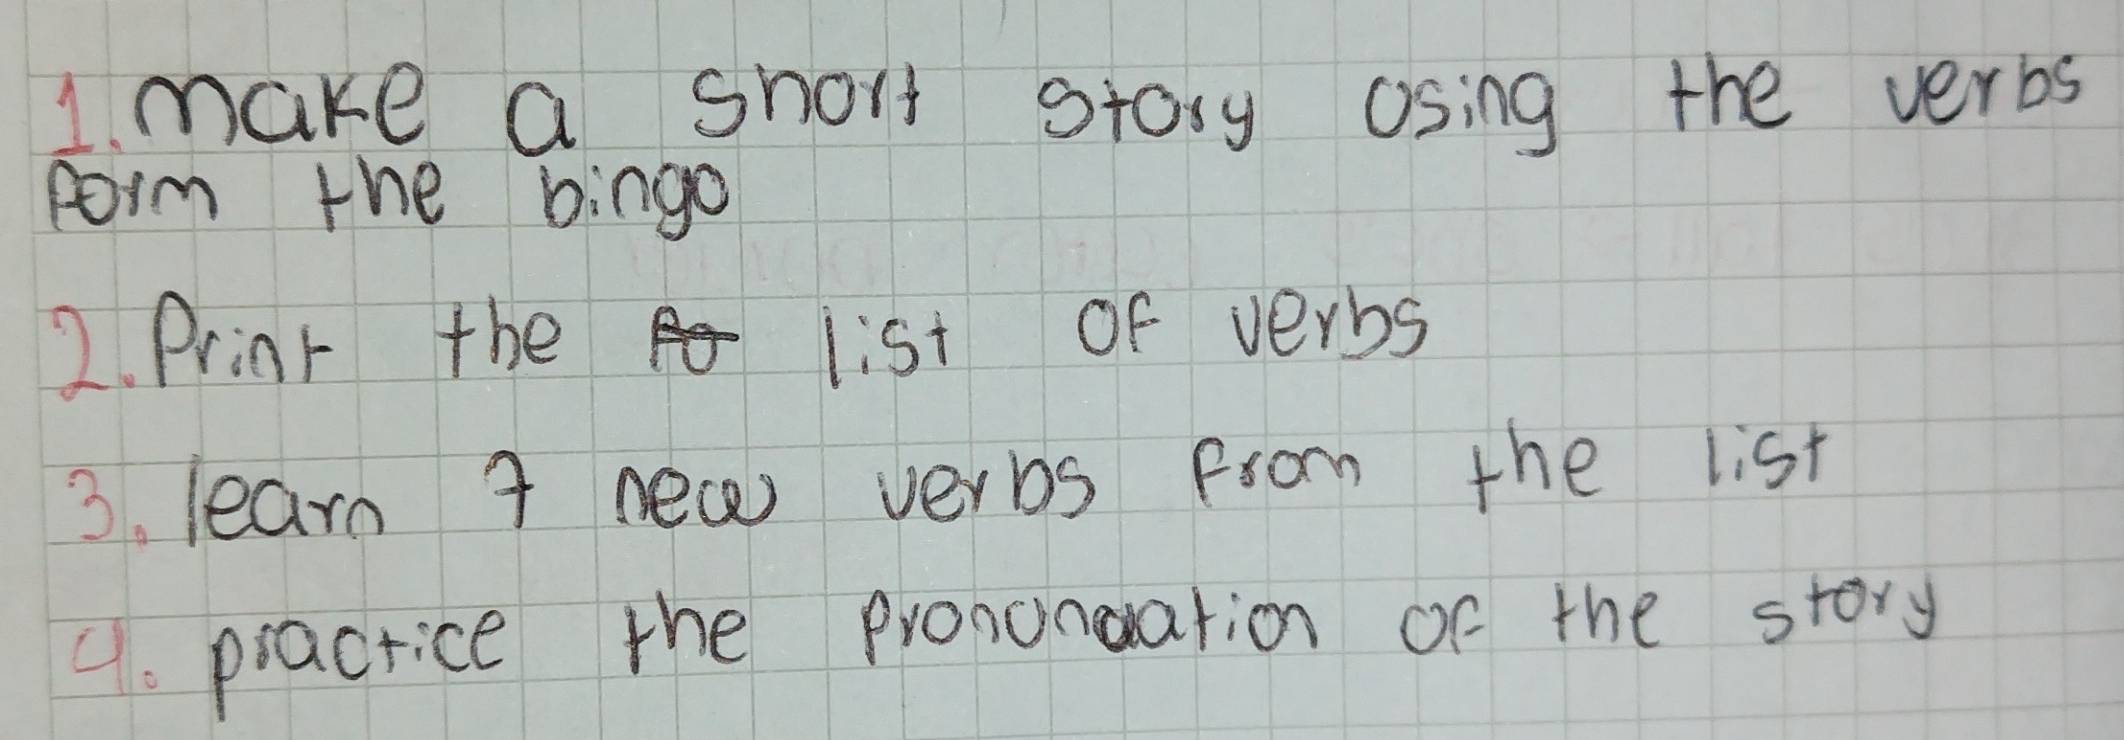 1. make a short story using the verbs
form the bingo
2. Print the list of verbs
3. learn 7 new verbs from the list
4. practice the pronunciation of the story